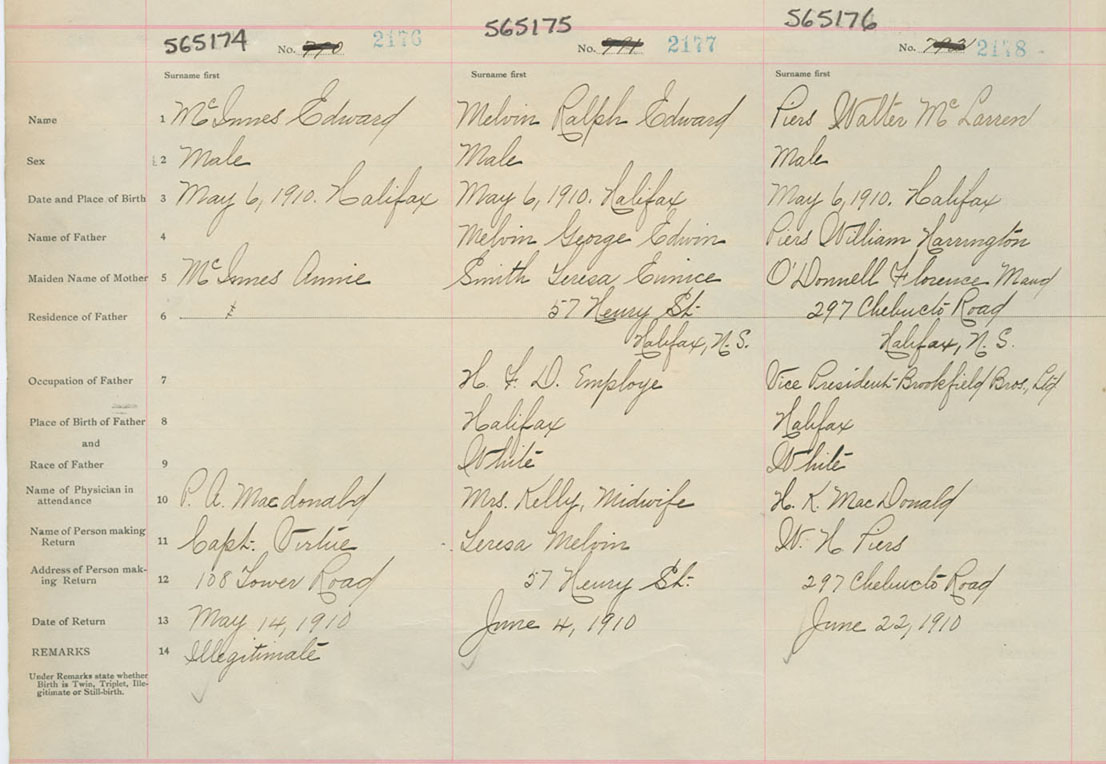 565174 565175 565176
No. 790 2176 No. 791 2177 No. 792 2178
Surname first Surname first Surname first
Name 1 McInnes Edward Melvin Ralph Edward Piers Walter McLarren
Sex 2 Male Male Male
Date and Place of Birth 3 May 6, 1910. Halifax May 6, 1910. Halifax May 6, 1910. Halifax
Name of Father 4 Melvin George Edwin Piers William Harrington
Maiden Name of Mother 5 McInnes Annie Smith Teresa Eunice O'Donnell Florence Maud
Residence of Father 6 57 Henry St. 297 Chebucto Road
Halifax, N.S. Halifax, N.S.
Occupation of Father 7 H. F. D. Employe Vice President Brookfield Bros., Ltd
Place of Birth of Father 8 Halifax Halifax
and
Race of Father 9 White White
Name of Physician in
attendance 10 P. A. Macdonald Mrs. Kelly, Midwife H. K. MacDonald
Name of Person making
Return 11 Capt. Virtue Teresa Melvin W. H Piers
Address of Person mak-
ing Return 12 108 Tower Road 57 Henry St. 297 Chebucto Road
Date of Return 13 May 14, 1910 June 4, 1910 June 22, 1910
REMARKS 14 Illegitimate
Under Remarks state whether
Birth is Twin, Triplet, Ille-
gitimate or Still-birth.